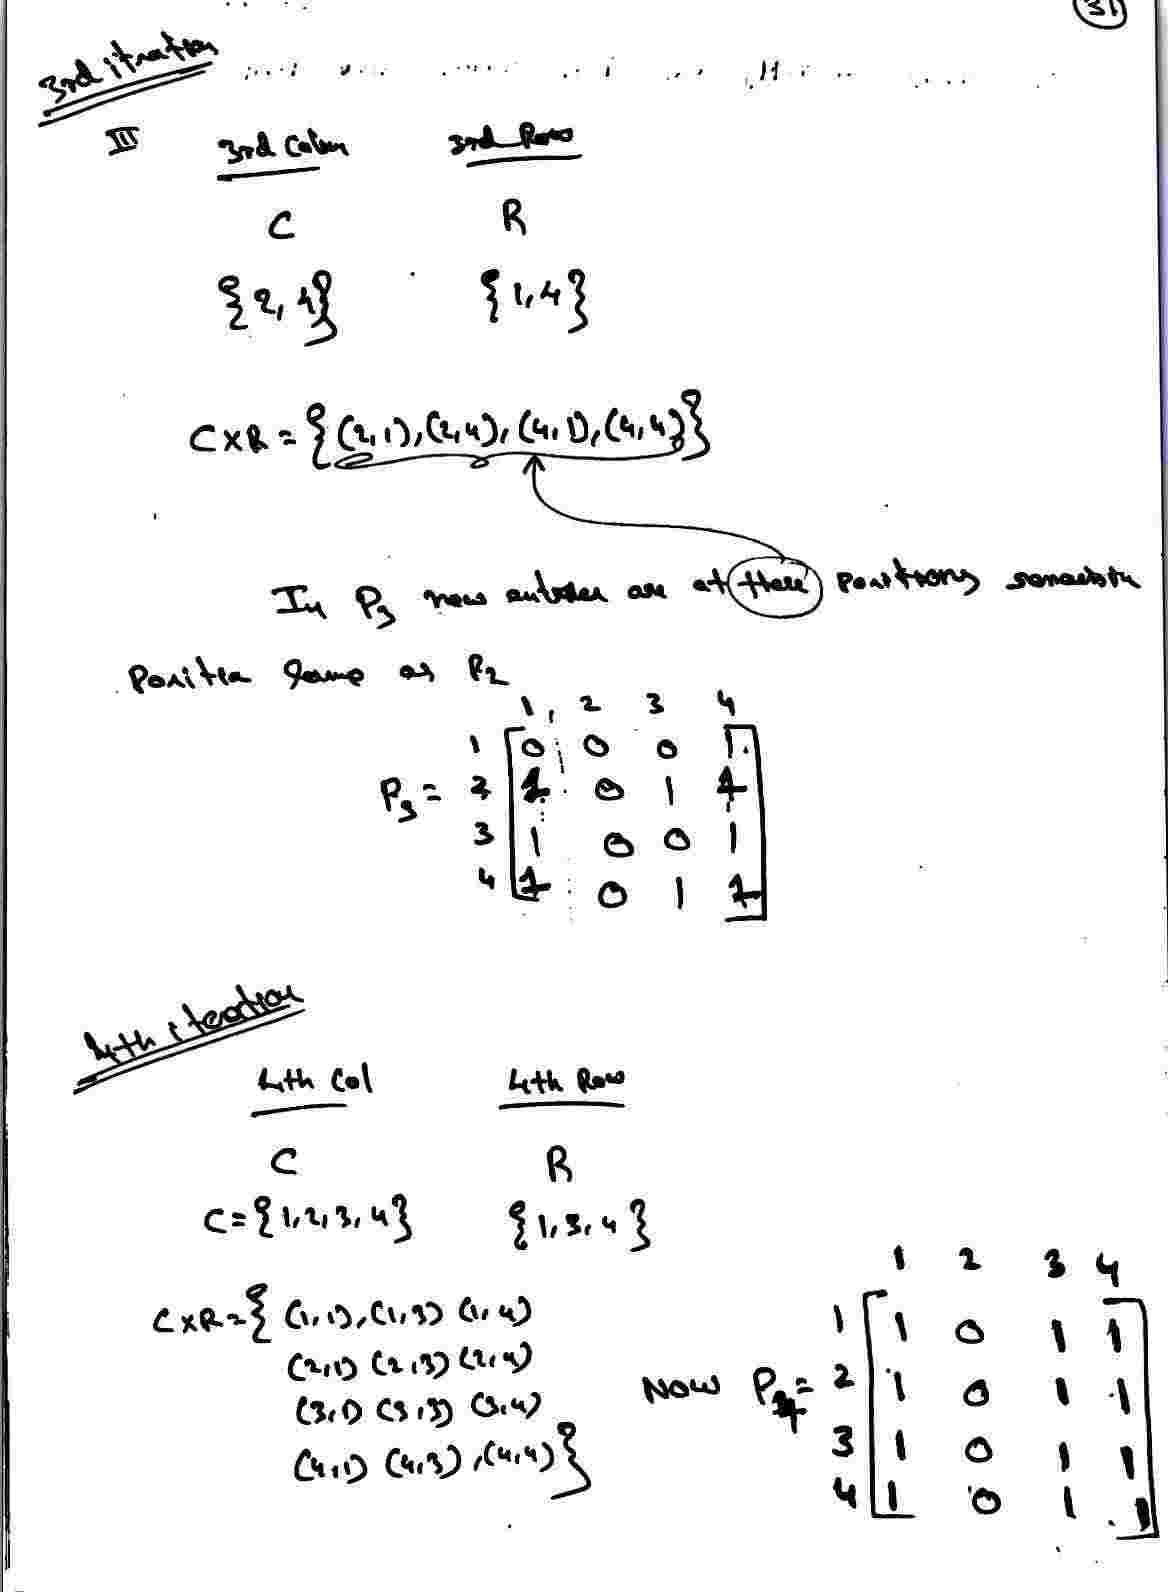 31
3rd itration
III 3rd Colum 3rd Row
C R
{2, 4} {1,4}
C X R = {(2,1),(2,4),(4,1),(4,4)}
In P3 new entries are at these positions remaining
Position Same as P2
1, 2 3 4
1 0 0 0 1
P3 = 2 1 0 1 1
3 1 0 0 1
4 1 0 1 1
4th iteration
4th Col 4th Row
C R
C = {1,2,3,4} {1,3,4}
C X R = { (1,1),(1,3) (1,4)
(2,1) (2,3) (2,4)
(3,1) (3,3) (3,4)
(4,1) (4,3),(4,4)}
1 2 3 4
1 1 0 1 1
Now P4 = 2 1 0 1 1
3 1 0 1 1
4 1 0 1 1